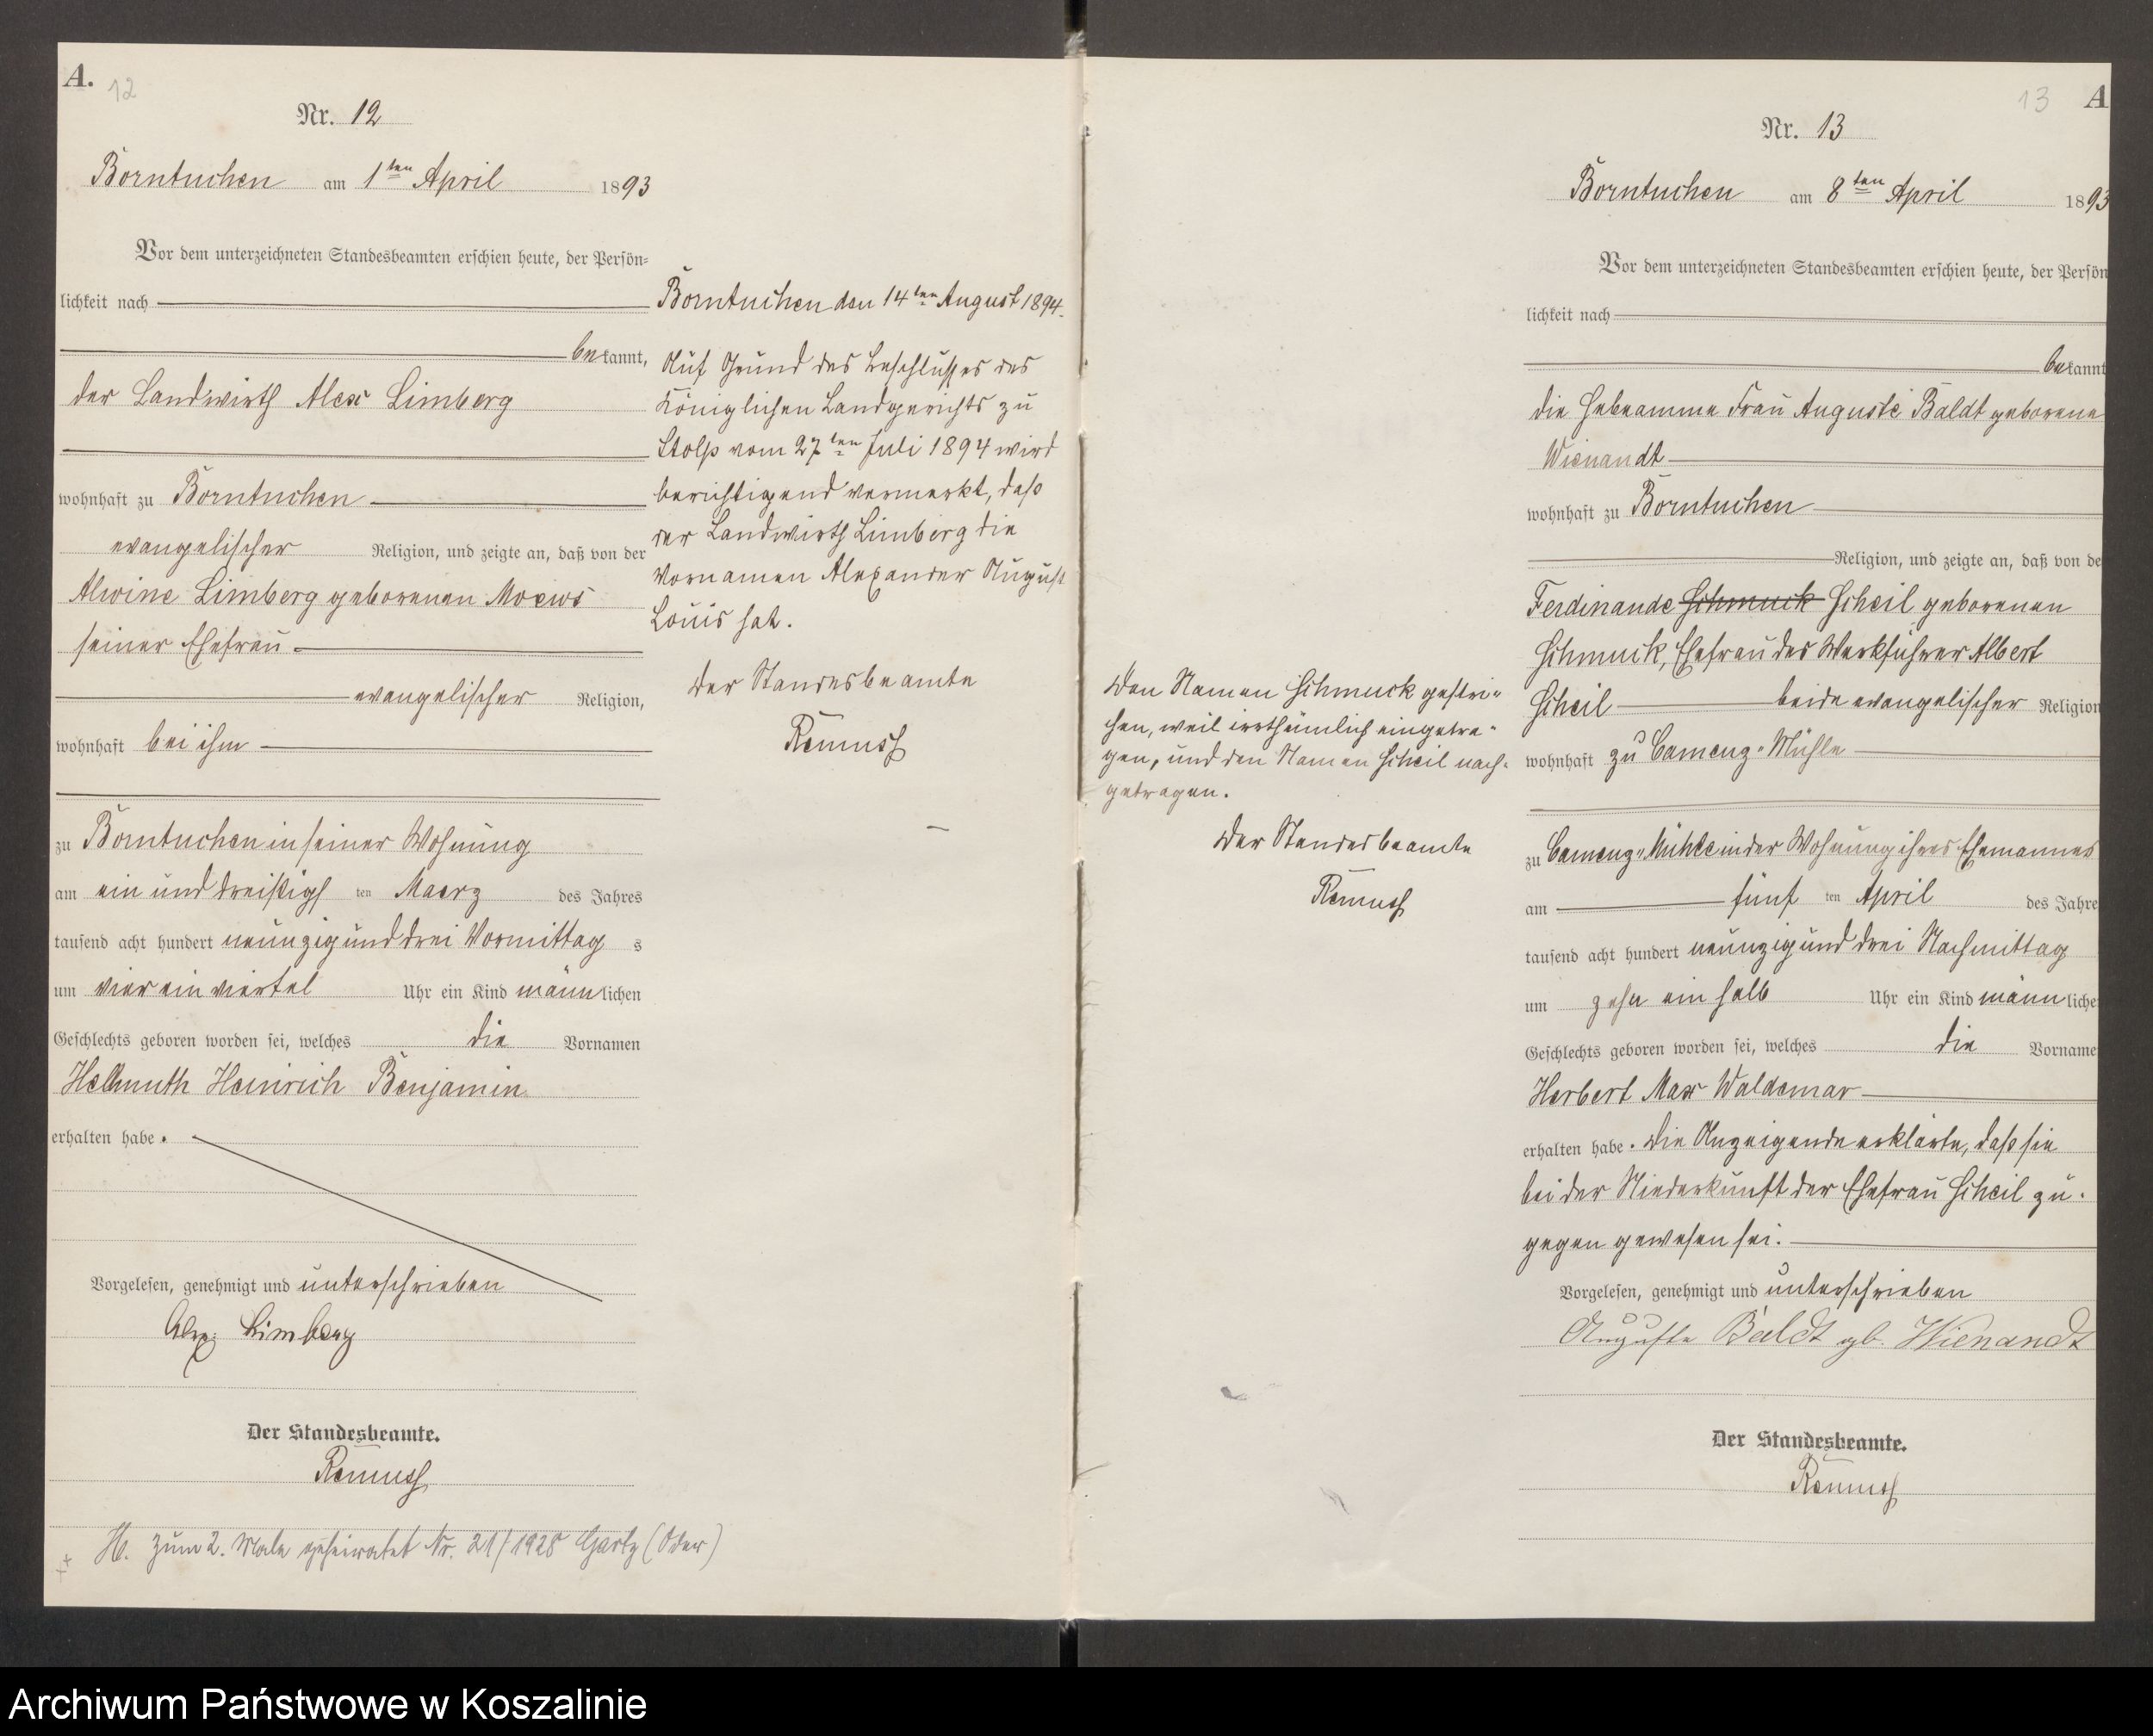 A.
12
Nr. 12
Borntuchen am 1ten April 1893
Vor dem unterzeichneten Standesbeamten erschien heute, der Persön-
lichkeit nach
bekannt,
der Landwirth Alex Limberg
wohnhaft zu Borntuchen
evangelischer Religion, und zeigte an, daß von der
Alwine Limberg geborenen Moews
seiner Ehefrau
evangelischer Religion,
wohnhaft bei ihm
zu Borntuchen in seiner Wohnung
am ein und dreißigst ten Maerz des Jahres
tausend acht hundert neunzig und drei Vormittag s
um vier ein viertel Uhr ein Kind männlichen
Geschlechts geboren worden sei, welches die Vornamen
Hellmuth Heinrich Benjamin
erhalten habe.
Vorgelesen, genehmigt und unterschrieben
Alex Limberg
Der Standesbeamte.
Remuss
H. zum 2. Male geheiratet Nr. 21/1928 Gartz (Oder)
Borntuchen den 14ten August 1894.
Auf Grund des Beschlusses des
Königlichen Landgerichts zu
Stolp vom 27ten Juli 1894 wird
berichtigend vermerkt, daß
der Landwirth Limberg die
Vornamen Alexander August
Louis hat.
Der Standesbeamte
Remuss
Den Namen Schmuck gestri-
chen, weil irrthümlich eingetra-
gen, und den Namen Scheil nach-
getragen.
Der Standesbeamte
Remuss
13 A
Nr. 13
Borntuchen am 8ten April 1893
Vor dem unterzeichneten Standesbeamten erschien heute, der Persön
lichkeit nach
bekannt
die Hebeamme Frau Auguste Baldt geborene
Wienandt
wohnhaft zu Borntuchen
Religion, und zeigte an, daß von de
Ferdinande Schmuck Scheil geborenen
Schmuck, Ehefrau des Werkführer Albert
Scheil beide evangelischer Religion
wohnhaft zu Camenz-Mühle
zu Camenz-Mühle in der Wohnung ihres Ehemannes
am fünf ten April des Jahre
tausend acht hundert neunzig und drei Nachmittag
um zehn ein halb Uhr ein Kind männliche
Geschlechts geboren worden sei, welches die Vorname
Herbert Max Waldemar
erhalten habe. Die Anzeigende erklärte, daß sie
bei der Niederkunft der Ehefrau Scheil zu-
gegen gewesen sei.
Vorgelesen, genehmigt und unterschrieben
Auguste Baldt gb. Wienandt
Der Standesbeamte.
Remuss
Archiwum Państwowe w Koszalinie